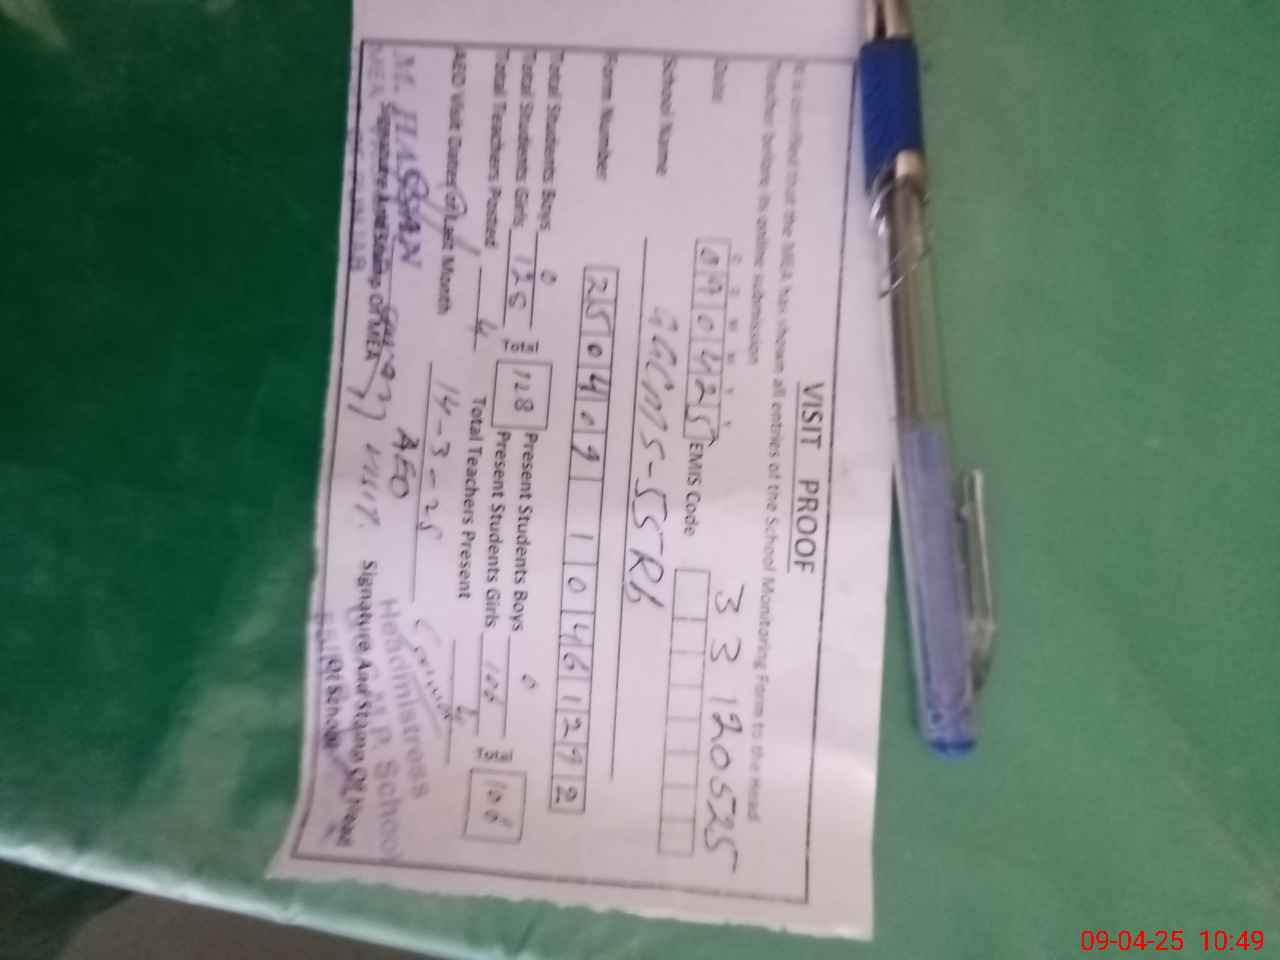 VISIT PROOF
It is certified that the MEA has shown all entries of the School Monitoring Form to the Head
Teacher before its online submission
Date 090425 EMIS Code 33120525
School Name GGCMS-55RB
Form Number
Total Students Boys 0 128 Present Students Boys 0
Total Students Girls 128 Present Students Girls 106 106
Total Teachers Posted 4 Total Teachers Present 4
AEO Visit Date Last Month 14-3-25
AEO
M. HASSAN
MEA
Signature And Stamp Of MEA
Visit.
Signature And Stamp Of Head
Of School
Headmistress
P. School
09-04-25 10:49